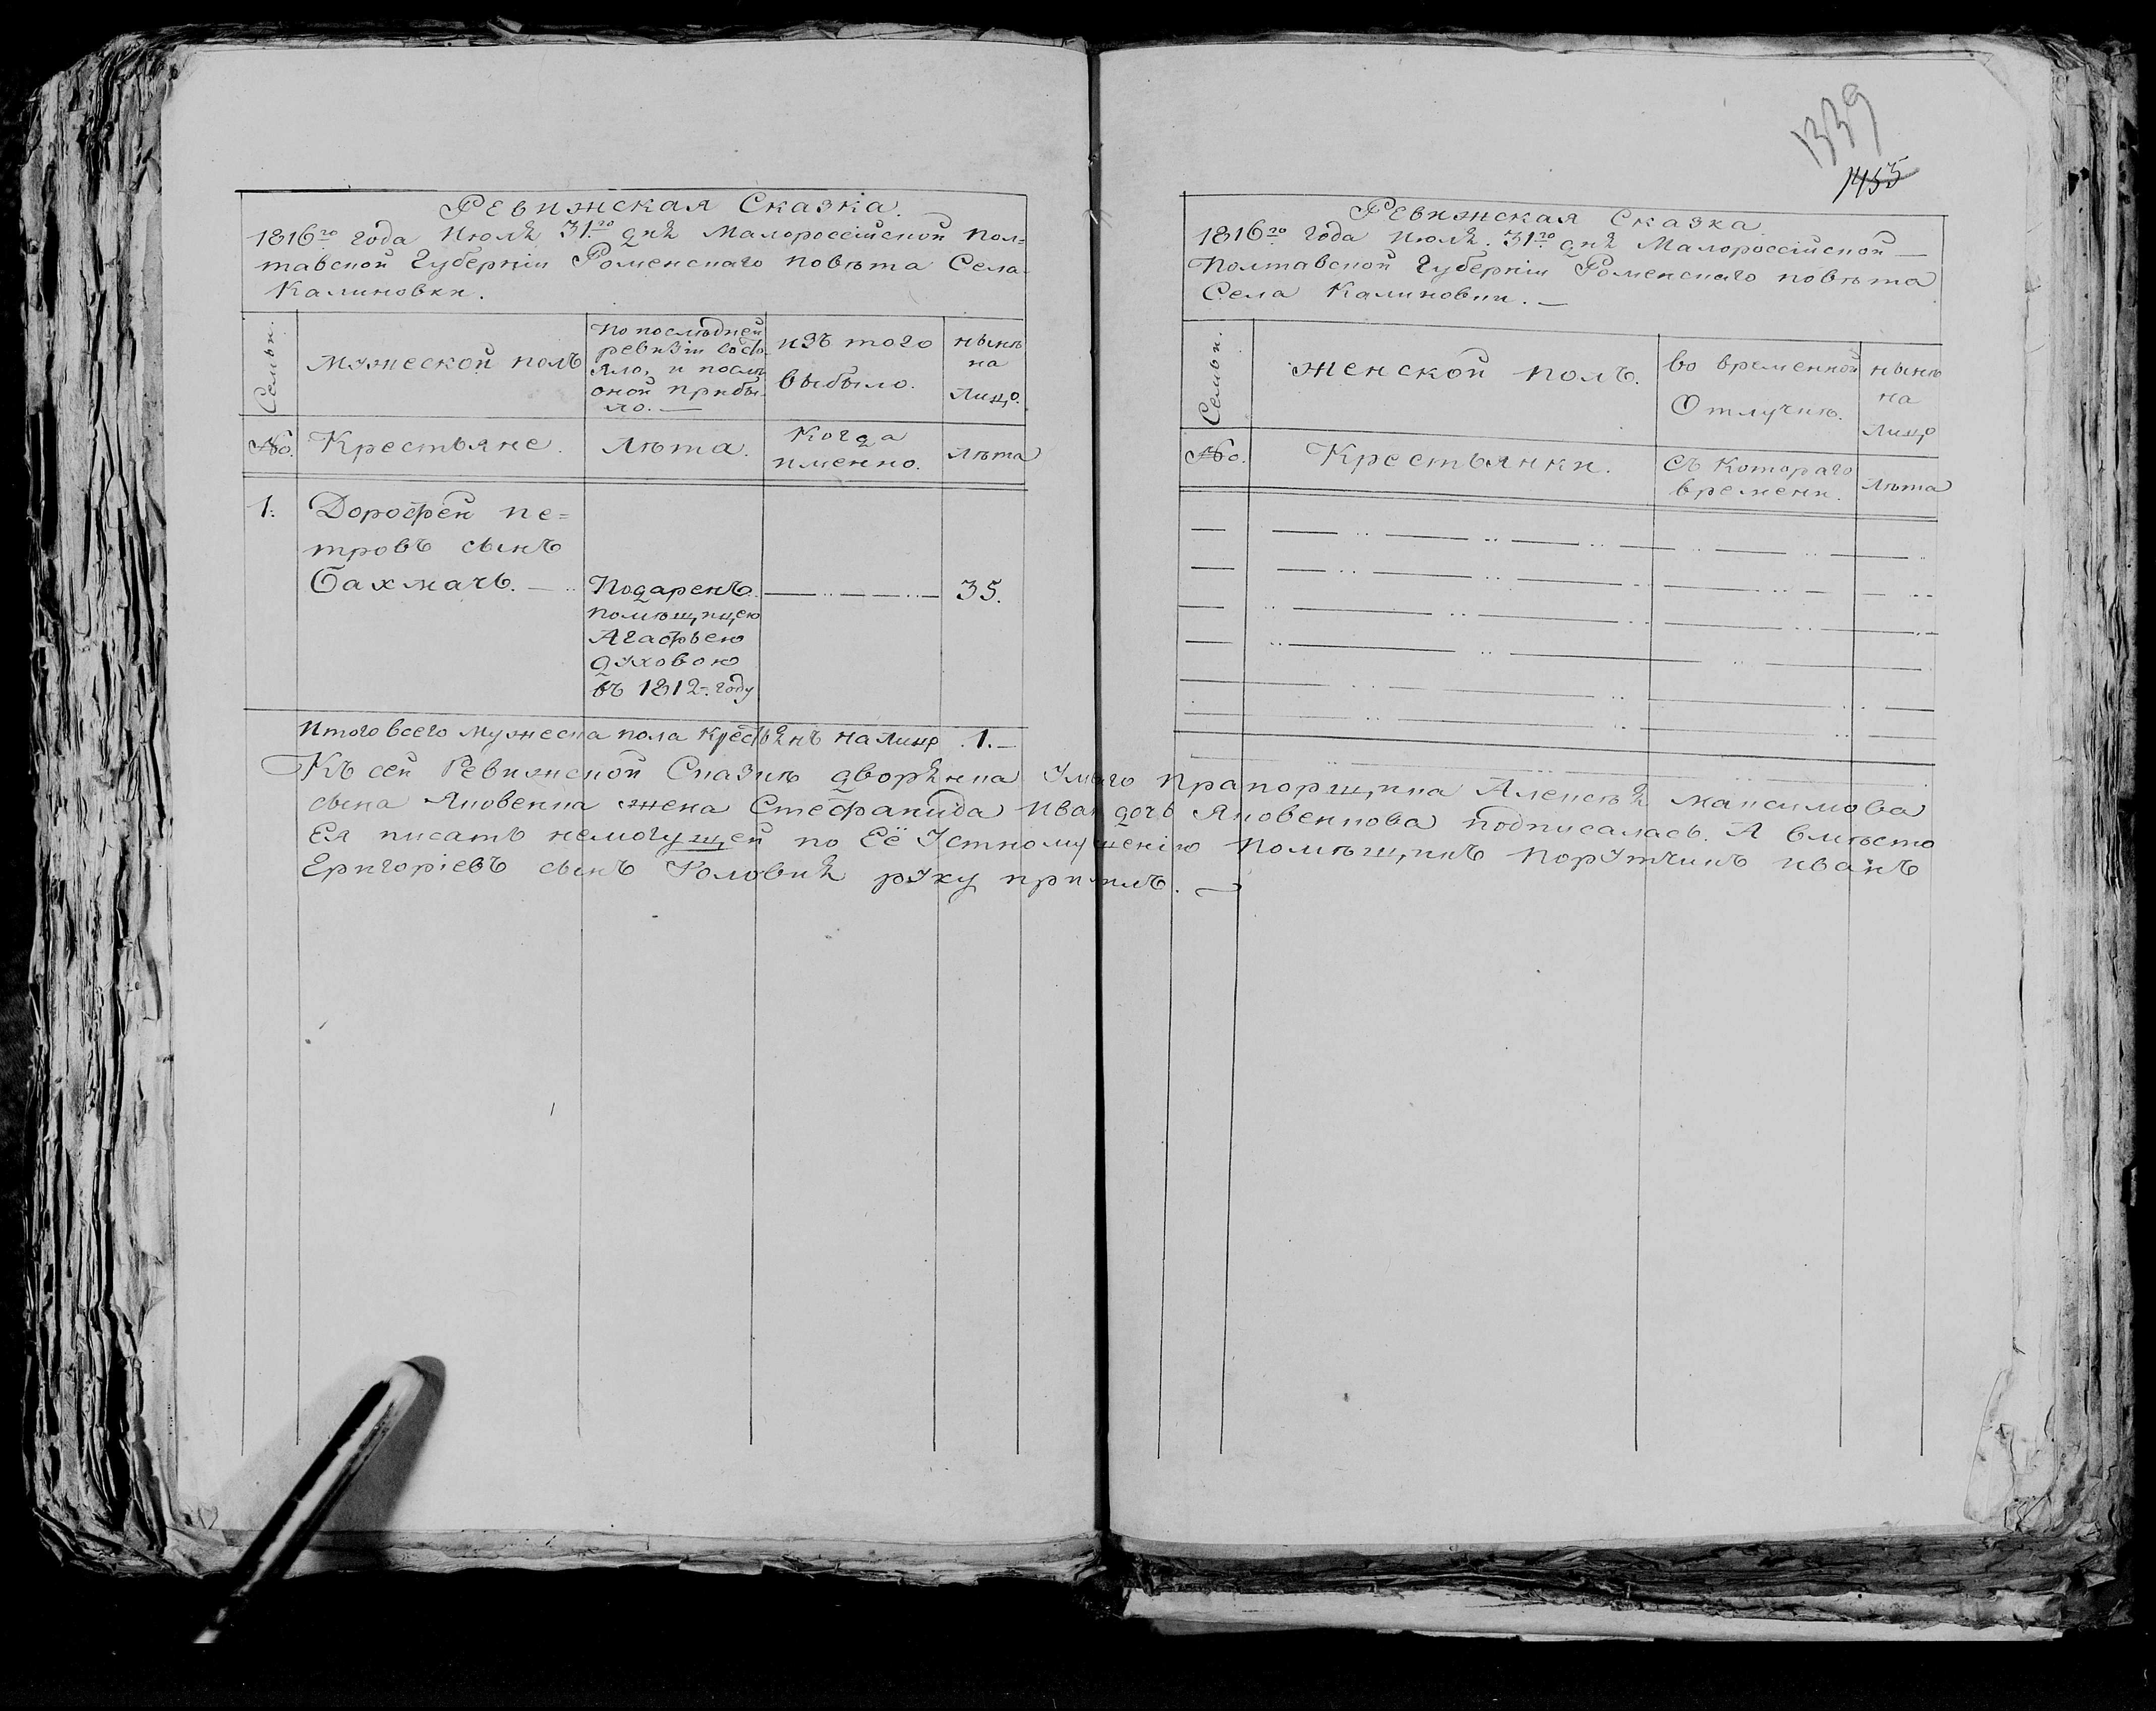 Ревижская Сказка.
1816го года Июля 31го дня Малороссійской Пол=
тавской Губерніи Роменскаго повѣта Села
Калиновки.
Семьи.
Мужеской полъ
По послѣдней
ревизіи состо-
яло, и послѣ
оной прибы-
ло. —
изъ того
выбыло.
нынѣ
на
Лицо.
№.
Крестьяне.
Лѣта.
Когда
именно.
Лѣта
1.
Дорофей Пе=
тровъ сынъ
Бахмачъ. —
Подаренъ
помѣщицею
Агафьею
духовою
въ 1812. году
35.
Итого всего мужеска пола крестьянъ налицо .1.—
1339
1455
Ревижская Сказка
1816го года Июля. 31го дня Малороссійской —
Полтавской Губерніи Роменскаго повѣта
Села Калиновки. —
Семьи.
женской полъ.
во временной
Отлучкѣ.
нынѣ
на
Лицо
№.
Крестьянки.
съ котораго
времени.
Лѣта
Къ сей Ревижской Сказкѣ дворянина Прапорщика Алексѣя Максимова
сына Яковенка жена Стефанида Иван дочь Яковенкова подписалась. А вмѣсто
Ея писать немогущей по Её Устному Помѣщикъ Порутчикъ Иванъ
Григоріевъ сынъ руку приложилъ. —